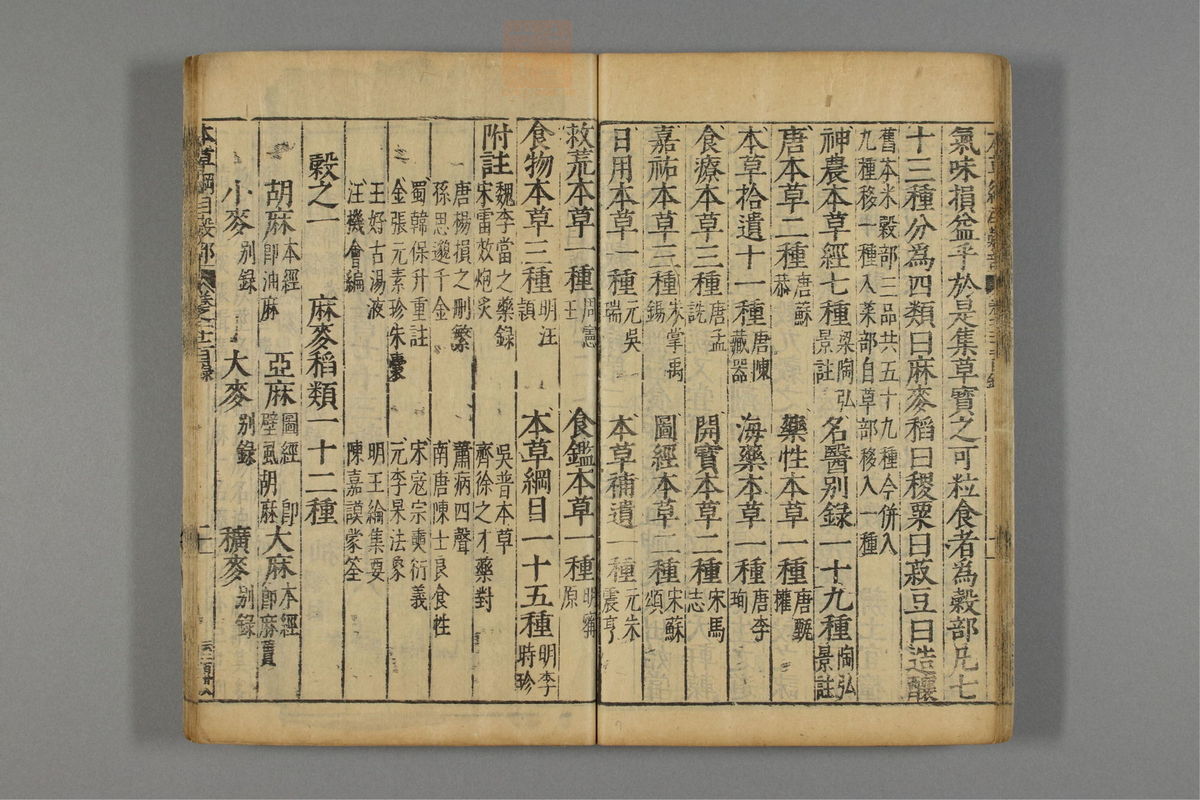 氣味損益乎於是集草實之可粒食者為穀部凡七
十三種分為四類曰麻麥稻曰稷粟曰菽豆曰造釀
舊本米穀部三品共五十九種今併入
九種移一種入菜部自草部移入一種
神農本草經七種 梁陶弘景註 名醫別錄一十九種 陶弘景註
唐本草二種 唐蘇恭 藥性本草一種 唐甄權
本草拾遺十一種 唐陳藏器 海藥本草一種 唐李珣
食療本草三種 唐孟詵 開寶本草二種 宋馬志
嘉祐本草三種 宋掌禹錫 圖經本草二種 宋蘇頌
日用本草一種 元吳瑞 本草補遺一種 元朱震亨
救荒本草一種 周憲王 食鑑本草一種 明甯原
食物本草三種 明汪頴 本草綱目一十五種 明李時珍
附註
魏李當之藥錄 吳普本草
宋雷斅炮炙 齊徐之才藥對
唐楊損之刪繁 蕭炳四聲
孫思邈千金 南唐陳士良食性
蜀韓保升重註 宋寇宗奭衍義
金張元素珍珠囊 元李杲法象
王好古湯液 明王綸集要
汪機會編 陳嘉謨蒙筌
穀之一 麻麥稻類一十二種
胡麻 本經 即油麻 亞麻 圖經 即壁虱胡麻 大麻 本經 即麻蕡
小麥 別錄 大麥 別錄 穬麥 別錄
本草綱目穀部 卷之二十二目錄